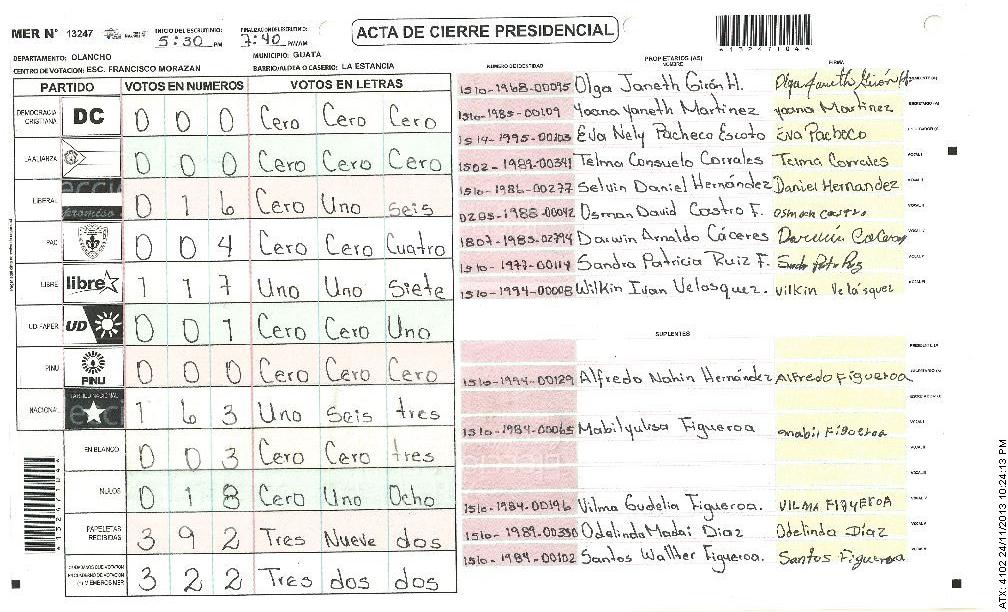 MER N° 13247 INICIO DEL ESCRUTINIO: 5:30 PM FINALIZACION ESCRUTINIO: 7:40 PM/AM
ACTA DE CIERRE PRESIDENCIAL
4132471044
DEPARTAMENTO: OLANCHO MUNICIPIO: GUATA
CENTRO DE VOTACION: ESC. FRANCISCO MORAZAN BARRIO/ALDEA O CASERIO: LA ESTANCIA
PARTIDO VOTOS EN NUMEROS VOTOS EN LETRAS
DEMOCRACIA CRISTIANA DC 0 0 0 Cero Cero Cero
LA ALIANZA 0 0 0 Cero Cero Cero
LIBERAL 0 1 6 Cero Uno seis
PAC 0 0 4 Cero Cero Cuatro
LIBRE libre 1 1 7 Uno Uno Siete
UD FAPER UD 0 0 1 Cero Cero Uno
PINU PINU 0 0 0 Cero Cero Cero
NACIONAL 1 6 3 Uno Seis tres
EN BLANCO 0 0 3 Cero Cero tres
NULOS 0 1 8 Cero Uno Ocho
PAPELETAS RECIBIDAS 3 9 2 Tres Nueve dos
CIUDADANOS QUE VOTARON EN CUADERNO DE VOTACION (+) MIEMBROS MER 3 2 2 Tres dos dos
PROPIETARIOS (AS)
NUMERO DE IDENTIDAD NOMBRE FIRMA
1510-1968-00095 Olga Janeth Girón H. Olga Janeth Girón H PRESIDENTE (A)
1510-1985-00109 Yoana Yaneth Martinez yoana Martinez SECRETARIO (A)
1514-1995-00103 Eva Nely Pacheco Escoto Eva Pacheco
1502-1989-00341 Telma Consuelo Corrales Telma Corrales VOCAL I
1510-1986-00277 Selvin Daniel Hernández Daniel Hernandez VOCAL II
0205-1988-00042 Osman David Castro F. osman castro
1807-1985-02794 Darwin Arnaldo Cáceres
1510-1977-00114 Sandra Patricia Ruiz F.
1510-1994-00008 Wilkin Ivan Velasquez. Vilkin Velásquez
SUPLENTES
PRESIDENTE (A)
1510-1994-00129 Alfredo Nahin Hernández Alfredo Figueroa SECRETARIO (A)
1510-1984-00065 Mabilyulisa Figueroa mabil Figueroa VOCAL I
1510-1984-00196 Vilma Gudelia Figueroa VILMA FIGUEROA
1510-1989-00350 Odelinda Madai Diaz Odelinda Díaz
1510-1984-00102 Santos Walther Figueroa. Santos Figueroa
ATX: 4102 24/11/2013 10:24:13 PM